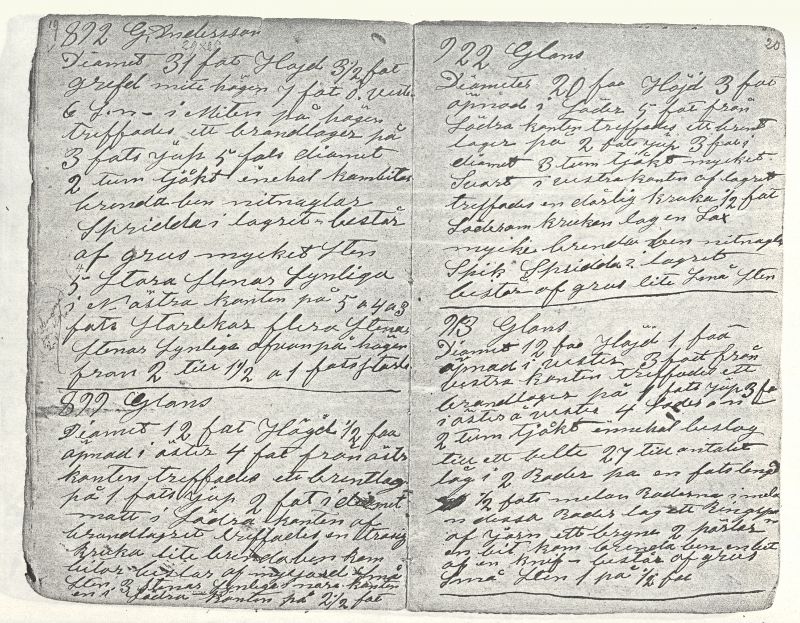 19
892 G. Andersson
Diamet 31 fat Höjd 3½ fat
grefd mitehögen 7 fat Ö. Vest
6 S.n - i Miten på högen
treffades ett brandlager på
3 fats jup 5 fats diamet
2 tum tjåkt inehol kambitar
brenda ben nitnaglar
Spridda i lagret - består
af grus mycket Sten
5 Stora Stenar Synliga
i N östra kanten på 5 a 4 a 3
fats Starlekar flera Stenar
Stenar Synliga ofvanpå högen
från 2 till 1½ a 1 fats Starle
899 Glans
Diamet 12 fat Högd ½ faa
åpnad i öster 4 fat från östr
kanten treffades ett brentlag
på 1 fats jup 2 fat i diamet
matt i Södra kanten af
brandlagret treffades en trasig
kruka lite brenda ben kam
bitar - består af myljord Små
Sten 3 Stenar Synliga
en i Södra kanten på 2½ fat
20
922 Glans
Diameter 20 faa Höjd 3 fat
åpnad i Söder 5 fat från
Södra kanten treffades ett brent
lager på 2 fats jup 3 fats
diamet 3 tum tjåkt mycket
Svart i vestra kanten af lagret
treffades en dårlig kruka ½ fat
Söderom kruken låg en Sax
mycke brenda ben nitnagla
Spik Spridda i lagret
består af grus lite Små Sten
913 Glans
Diamet 12 faa Höjd 1 faa
åpnad i vester 3 fatt från
vestra kanten treffades ett
brandlager på 1 fats jup 3 fa
i öster å vester 4 Söder o n
2 tum tjåkt inehal beslag
till ett belte 27 till antalet
låg i 2 Rader på en fats lengd
½ fats melan Raderna i mela
n dessa Rader låg ett Ringspen
af jarn ett bryne 2 pärlor
en bit kam brenda ben en bit
af en knif - består af grus
Små Sten 1 på ½ fat